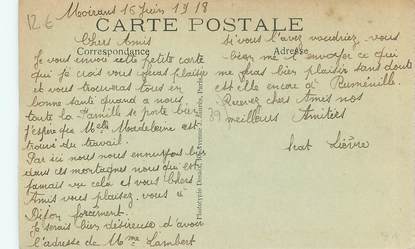 126
Moirans 16 Juin 1918
CARTE POSTALE
Correspondance
Adresse
Chers Amis
Je vous envoie cette petite carte
qui je crois vous feras plaisir
et vous trouveras tous en
bonne santé quand a nous
toute la Famille se porte bien
J'espère que Melle Madeleine est
trouvé du travail.
Par ici nous nous ennuyons bien
dans ces montagnes nous qui est
jamais vu cela et vous Chers
Amis vous plaisez vous a
Dijon forcement.
Je serais bien désireuse d'avoir
l'adresse de Mme Lambert
si vous l'avez voudriez vous
bien me l'envoyer ce qui
me feras bien plaisir sans doute
est elle encore a
Recevez chers Amis nos
meilleurs Amitiés
Lièvre